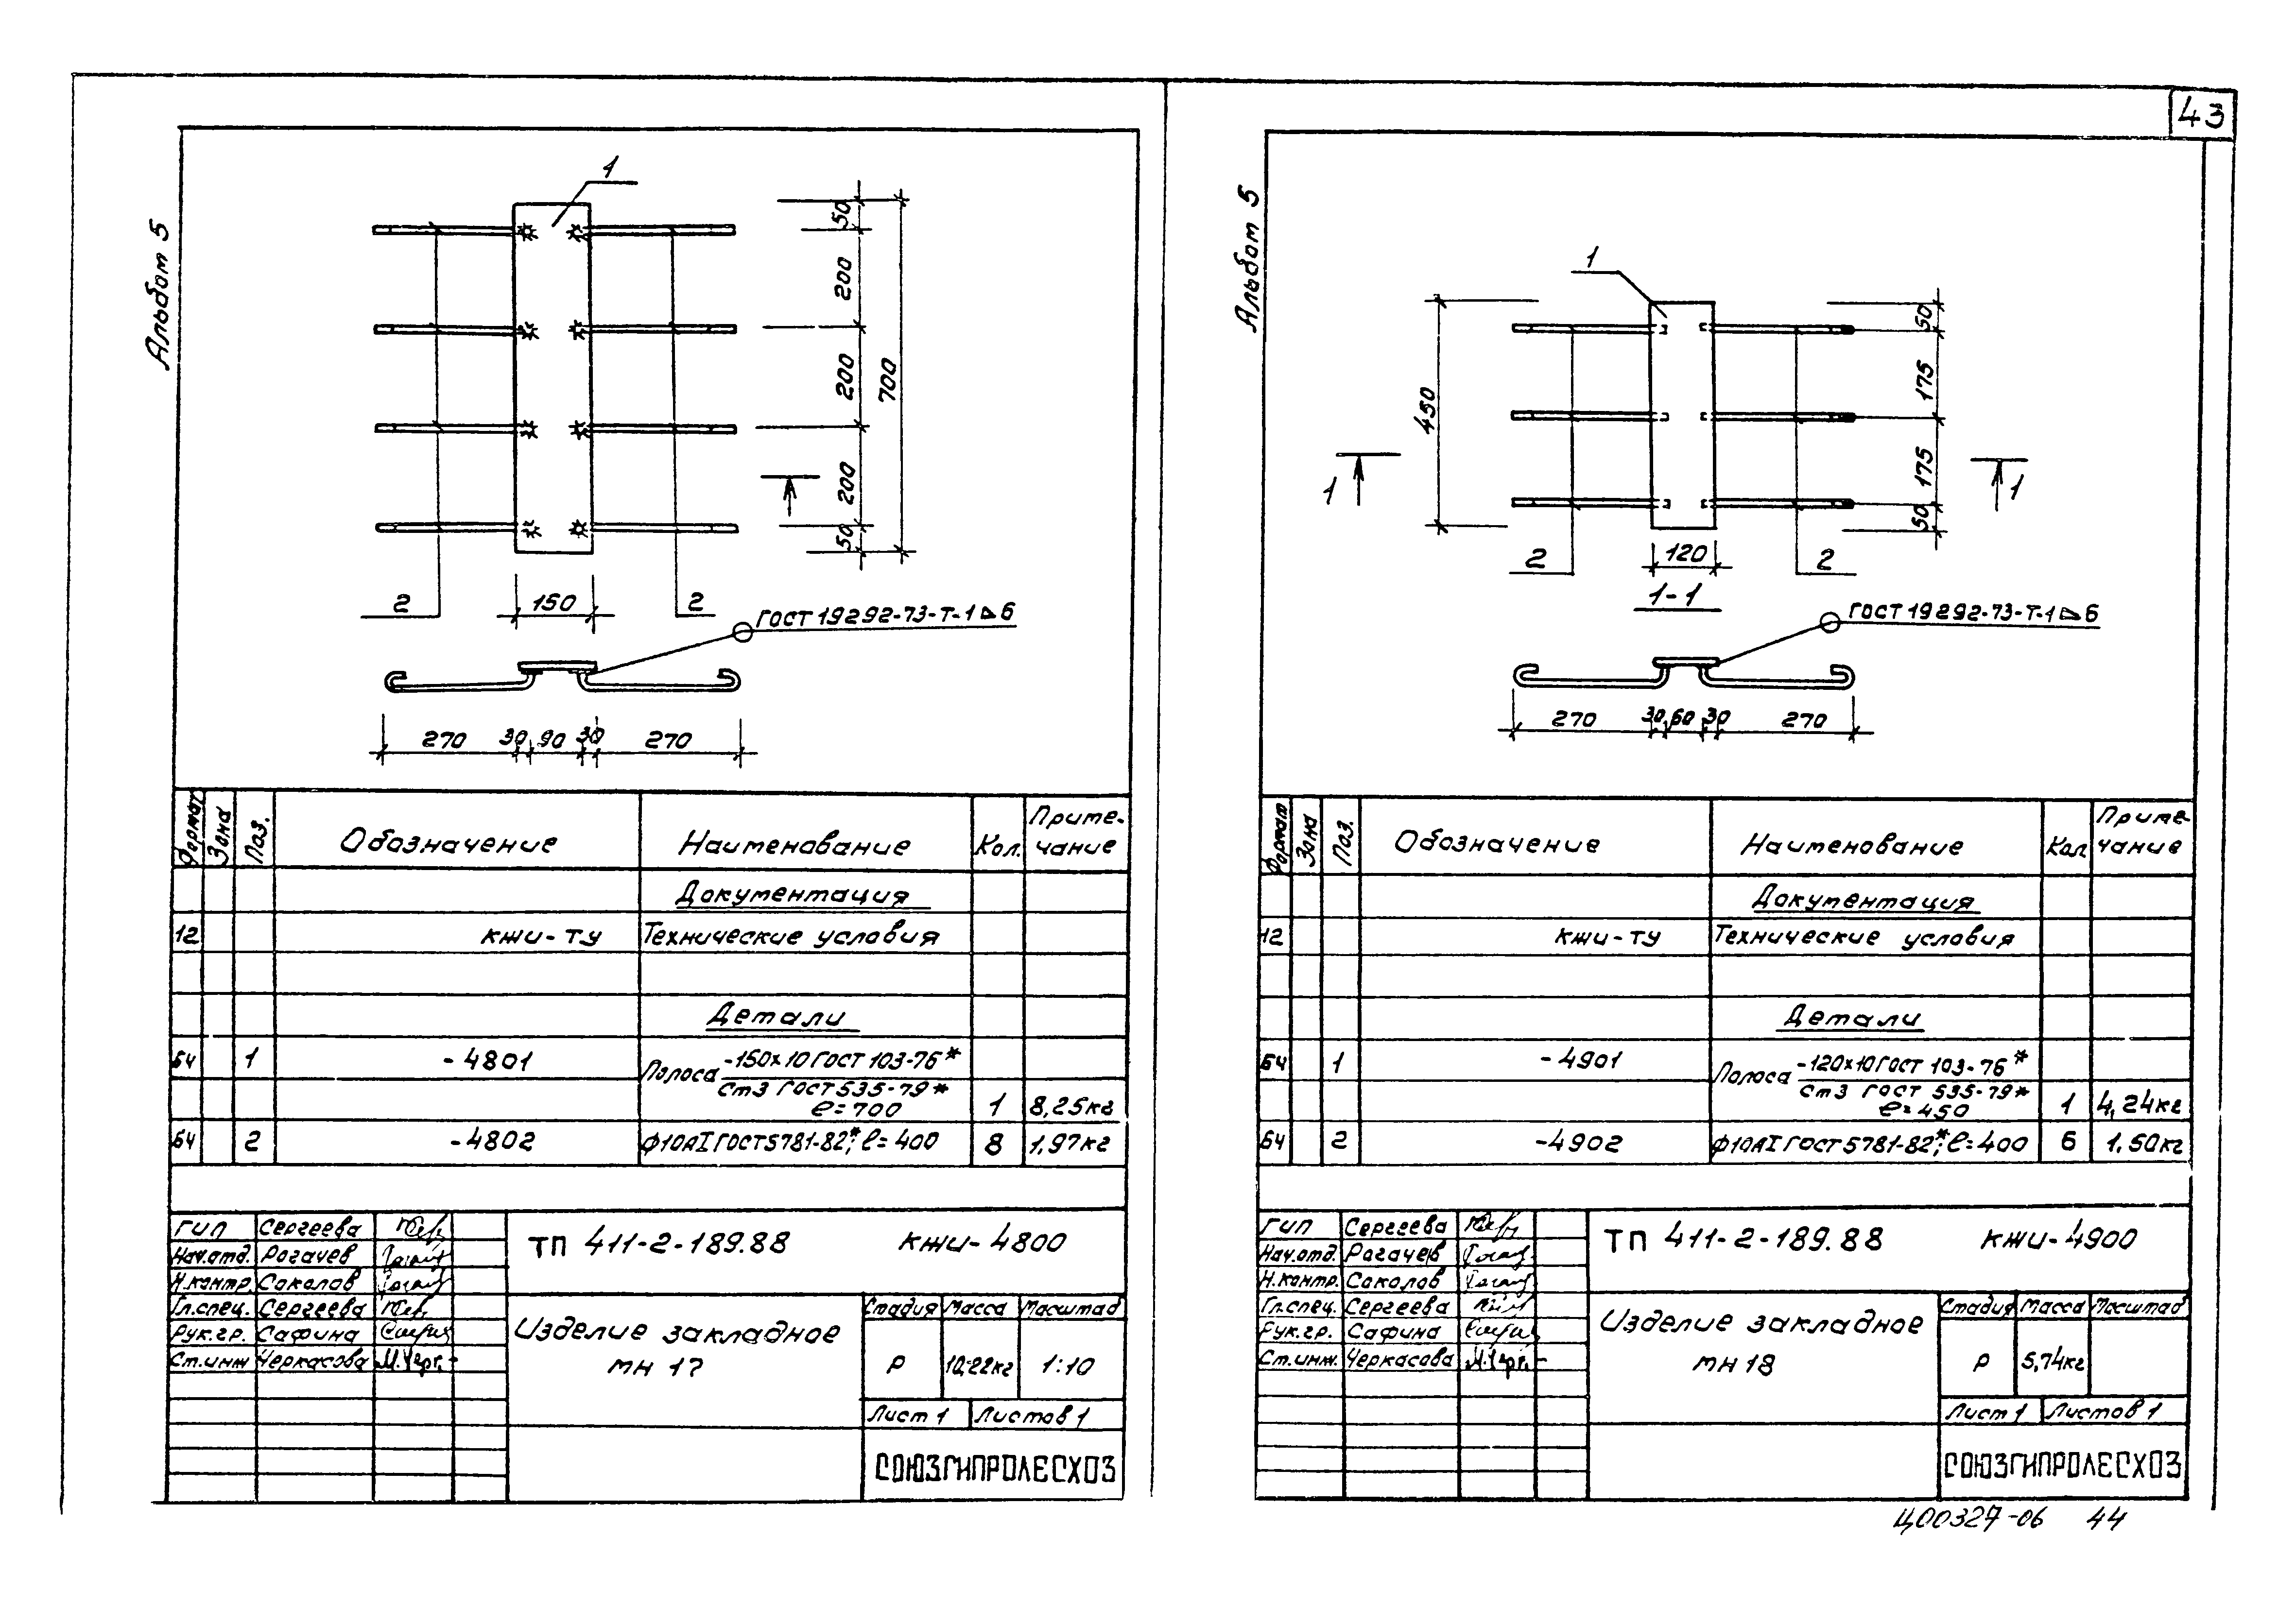 43
Альбом 5
1
50
200
200
200
50
700
2
150
2
ГОСТ 19292-73-Т-1 ⊿6
270 30 90 30 270
Формат Зона Поз. Обозначение Наименование Кол. Приме-чание
Документация
12 КЖИ-ТУ Технические условия
Детали
БЧ 1 -4801 Полоса -150х10 ГОСТ 103-76*
Ст3 ГОСТ 535-79*
ℓ=700 1 8,25кг
БЧ 2 -4802 ф10АI ГОСТ 5781-82*; ℓ=400 8 1,97кг
ГИП Сергеева
Нач.отд. Рогачев
Н.контр. Соколов
Гл.спец. Сергеева
Рук.гр. Сафина
Ст.инж Черкасова
ТП 411-2-189.88 КЖИ-4800
Изделие закладное
МН 17
Стадия Масса Масштаб
Р 10,22кг 1:10
Лист 1 Листов 1
СОЮЗГИПРОЛЕСХОЗ
Альбом 5
1
450
50
175
175
50
1 1
2 120 2
1-1
ГОСТ 19292-73-Т-1 ⊿6
270 30 60 30 270
Формат Зона Поз. Обозначение Наименование Кол Приме-чание
Документация
12 КЖИ-ТУ Технические условия
Детали
БЧ 1 -4901 Полоса -120х10 ГОСТ 103-76*
Ст3 ГОСТ 535-79*
ℓ=450 1 4,24кг
БЧ 2 -4902 ф10АI ГОСТ 5781-82*; ℓ=400 6 1,50кг
ГИП Сергеева
Нач.отд. Рогачев
Н.контр. Соколов
Гл.спец. Сергеева
Рук.гр. Сафина
Ст.инж. Черкасова
ТП 411-2-189.88 КЖИ-4900
Изделие закладное
МН 18
Стадия Масса Масштаб
Р 5,74кг
Лист 1 Листов 1
СОЮЗГИПРОЛЕСХОЗ
Ц00327-06 44